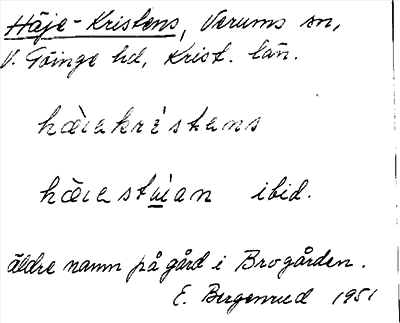 Häje-Kristens, Verums sn,
V. Göinge hd, Krist. län.
hæ̀iekrè̍stens
hæ̀iestu̲̍ian ibid.
äldre namn på gård i Brogården.
E. Bergenrud 1951